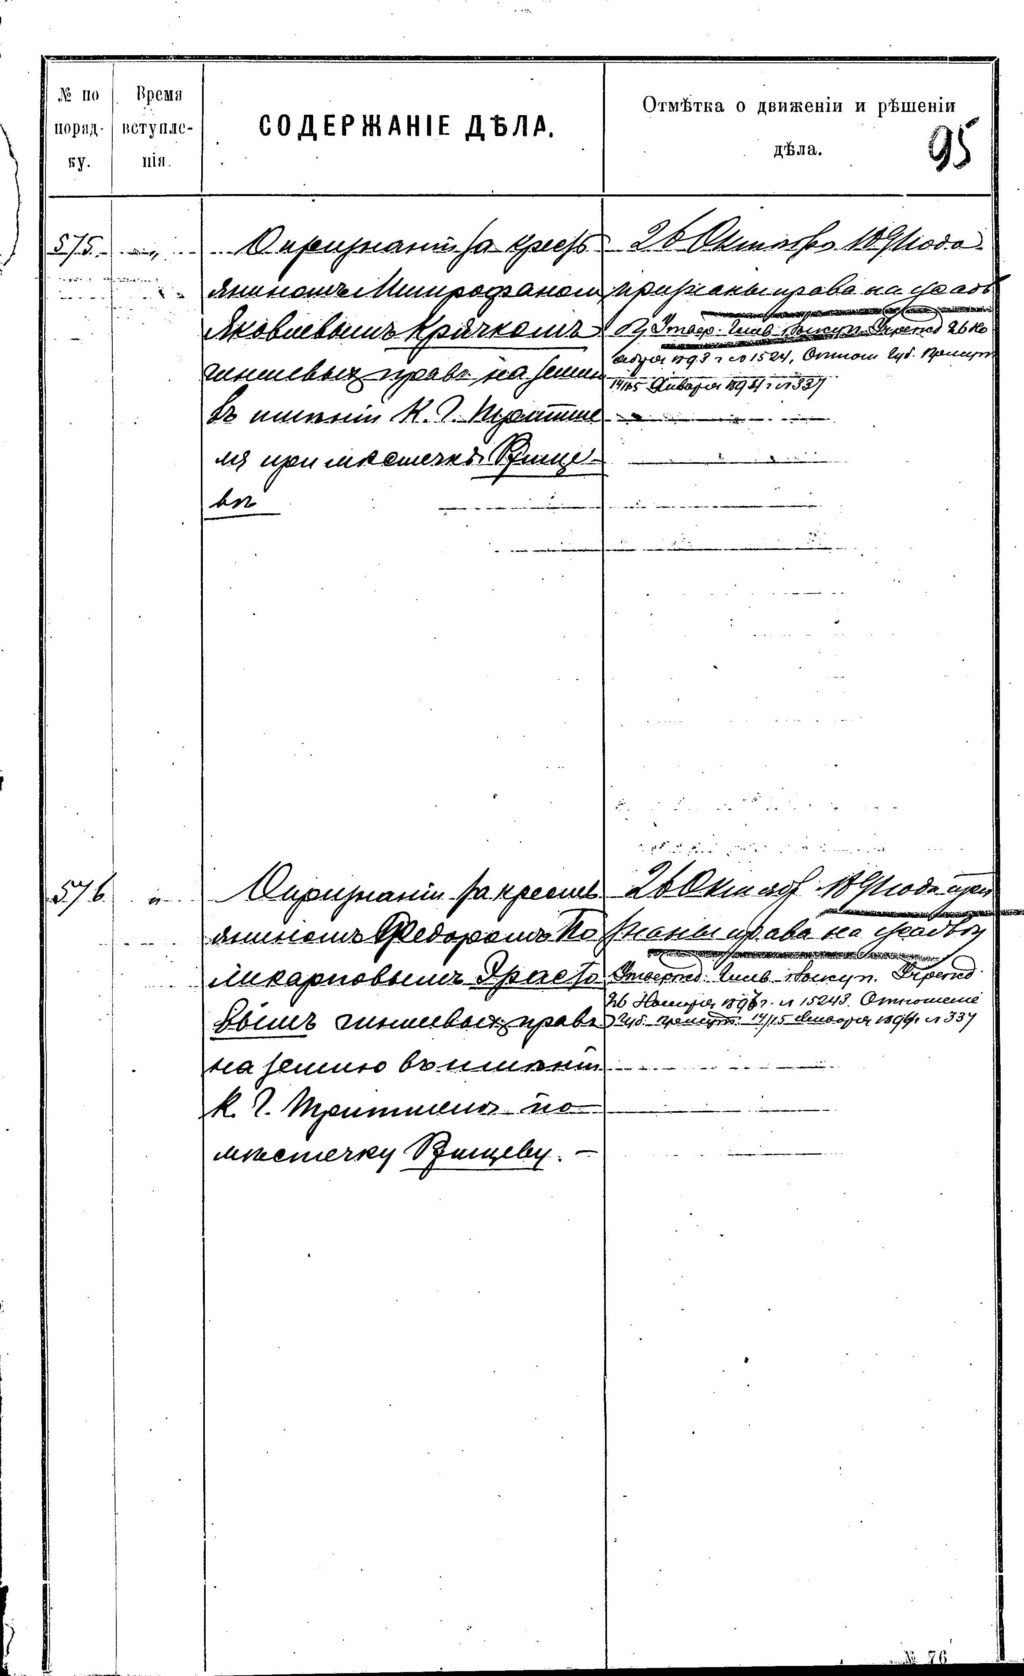 № по поряд- ку.
Время вступле- нія.
СОДЕРЖАНІЕ ДѢЛА.
Отмѣтка о движеніи и рѣшеніи
дѣла.
95
575
О признаніи за кресть
яниномъ Митрофаномъ
Яковлевымъ Крячкомъ
чиншевыхъ правъ на землю
въ имѣніи К. Г.
при мѣстечкѣ Ржище-
вѣ
26 Октября 189 года
признаны права на усадь
бу Утвер. 26 Но
ября 1893 г № 1524, Отнош Губ. Присут
14/15 Января 1894 г № 337
576
О признаніи за крестья
яниномъ Федоромъ По
ликарповымъ
вымъ чиншевыхъ правъ
на землю въ имѣніи
К. Г. по
мѣстечку Ржищеву. —
26 Октяб 189 года при
знаны права на усадьбу
Утвержд.
26 Ноября 189 г. № 15243. Отношеніе
Губ. Присут. 14/15 Января 1894 г № 337
№ 76